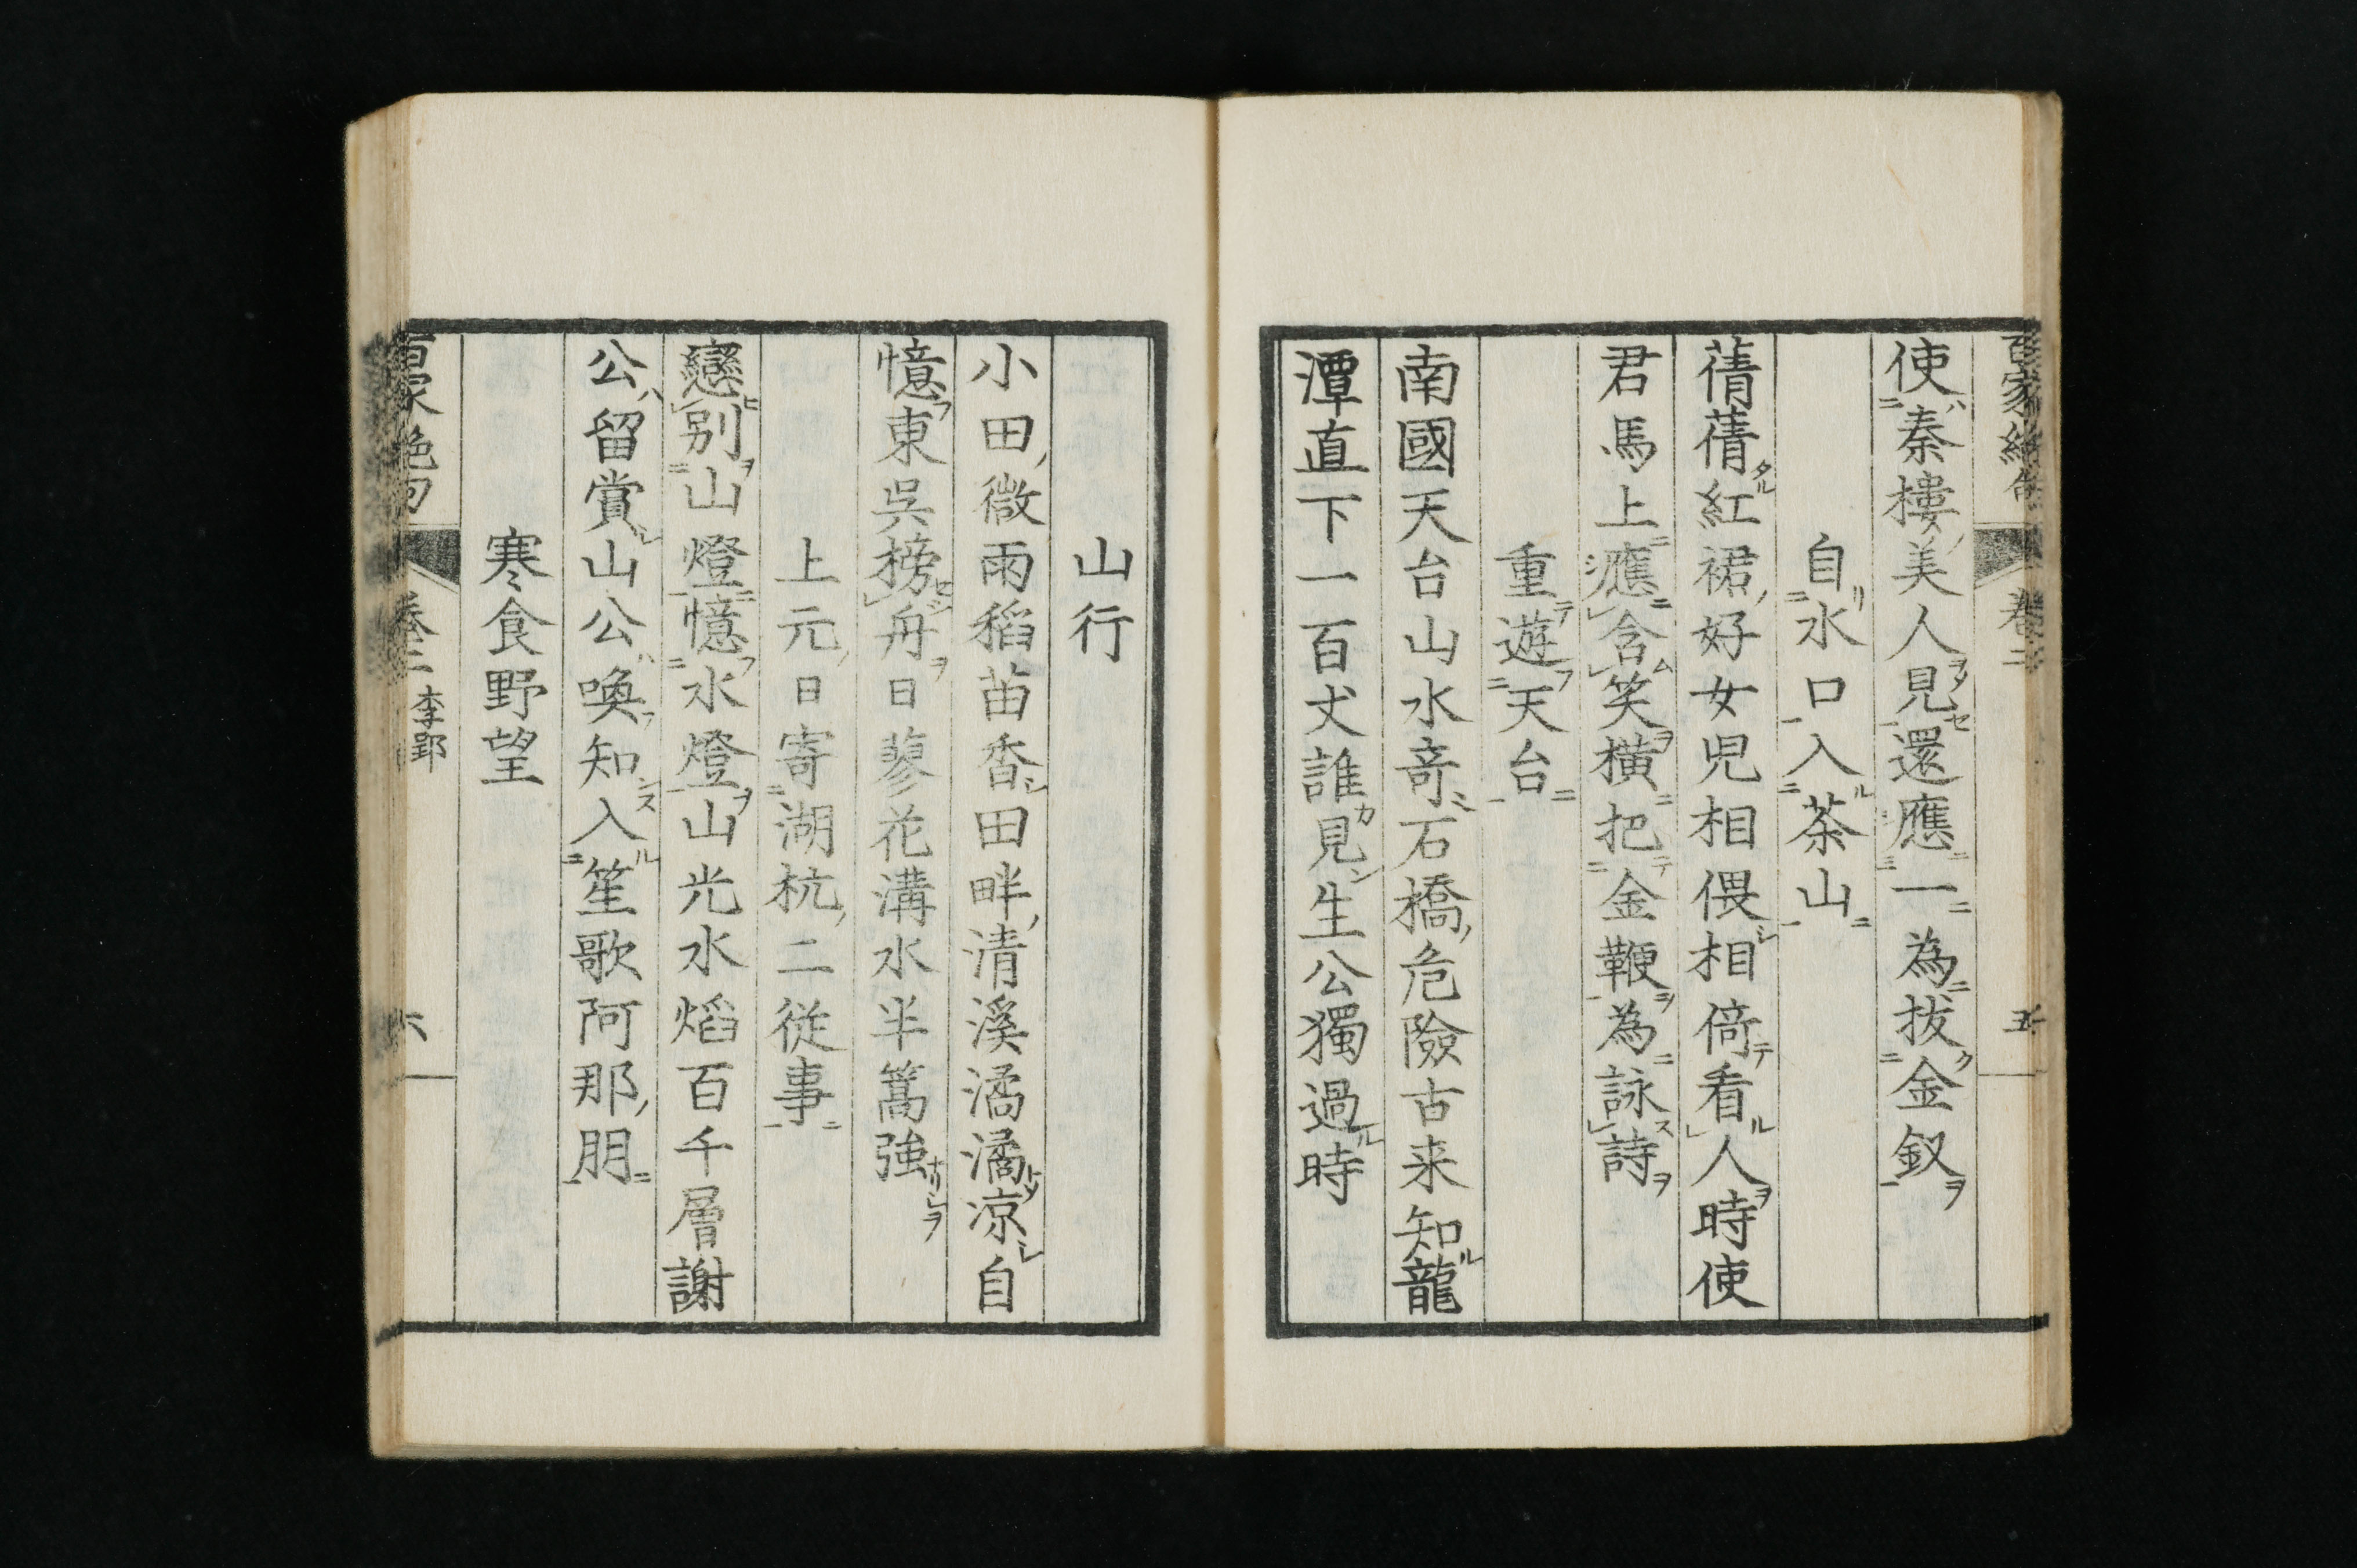 百家絶句 卷二 五
使秦樓美人見還應一為拔金釵
自水口入茶山
蒨蒨紅裙好女児相偎相倚看人時使
君馬上應含笑橫把金鞭為詠詩
重遊天台
南國天台山水竒石橋危險古来知龍
潭直下一百丈誰見生公獨過時
山行
小田微雨稻苗香田畔清溪潏潏凉自
憶東吳榜舟日蓼花溝水半篙強
上元日寄湖杭二従事
戀別山燈憶水燈山光水焰百千層謝
公留賞山公喚知入笙歌阿那朋
寒食野望
百家絶句 卷二 李郢 六